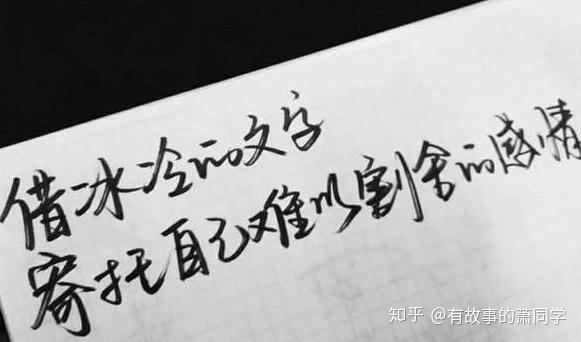 借冰冷的文字
寄托自己难以割舍的感情
知乎 @有故事的萧同学